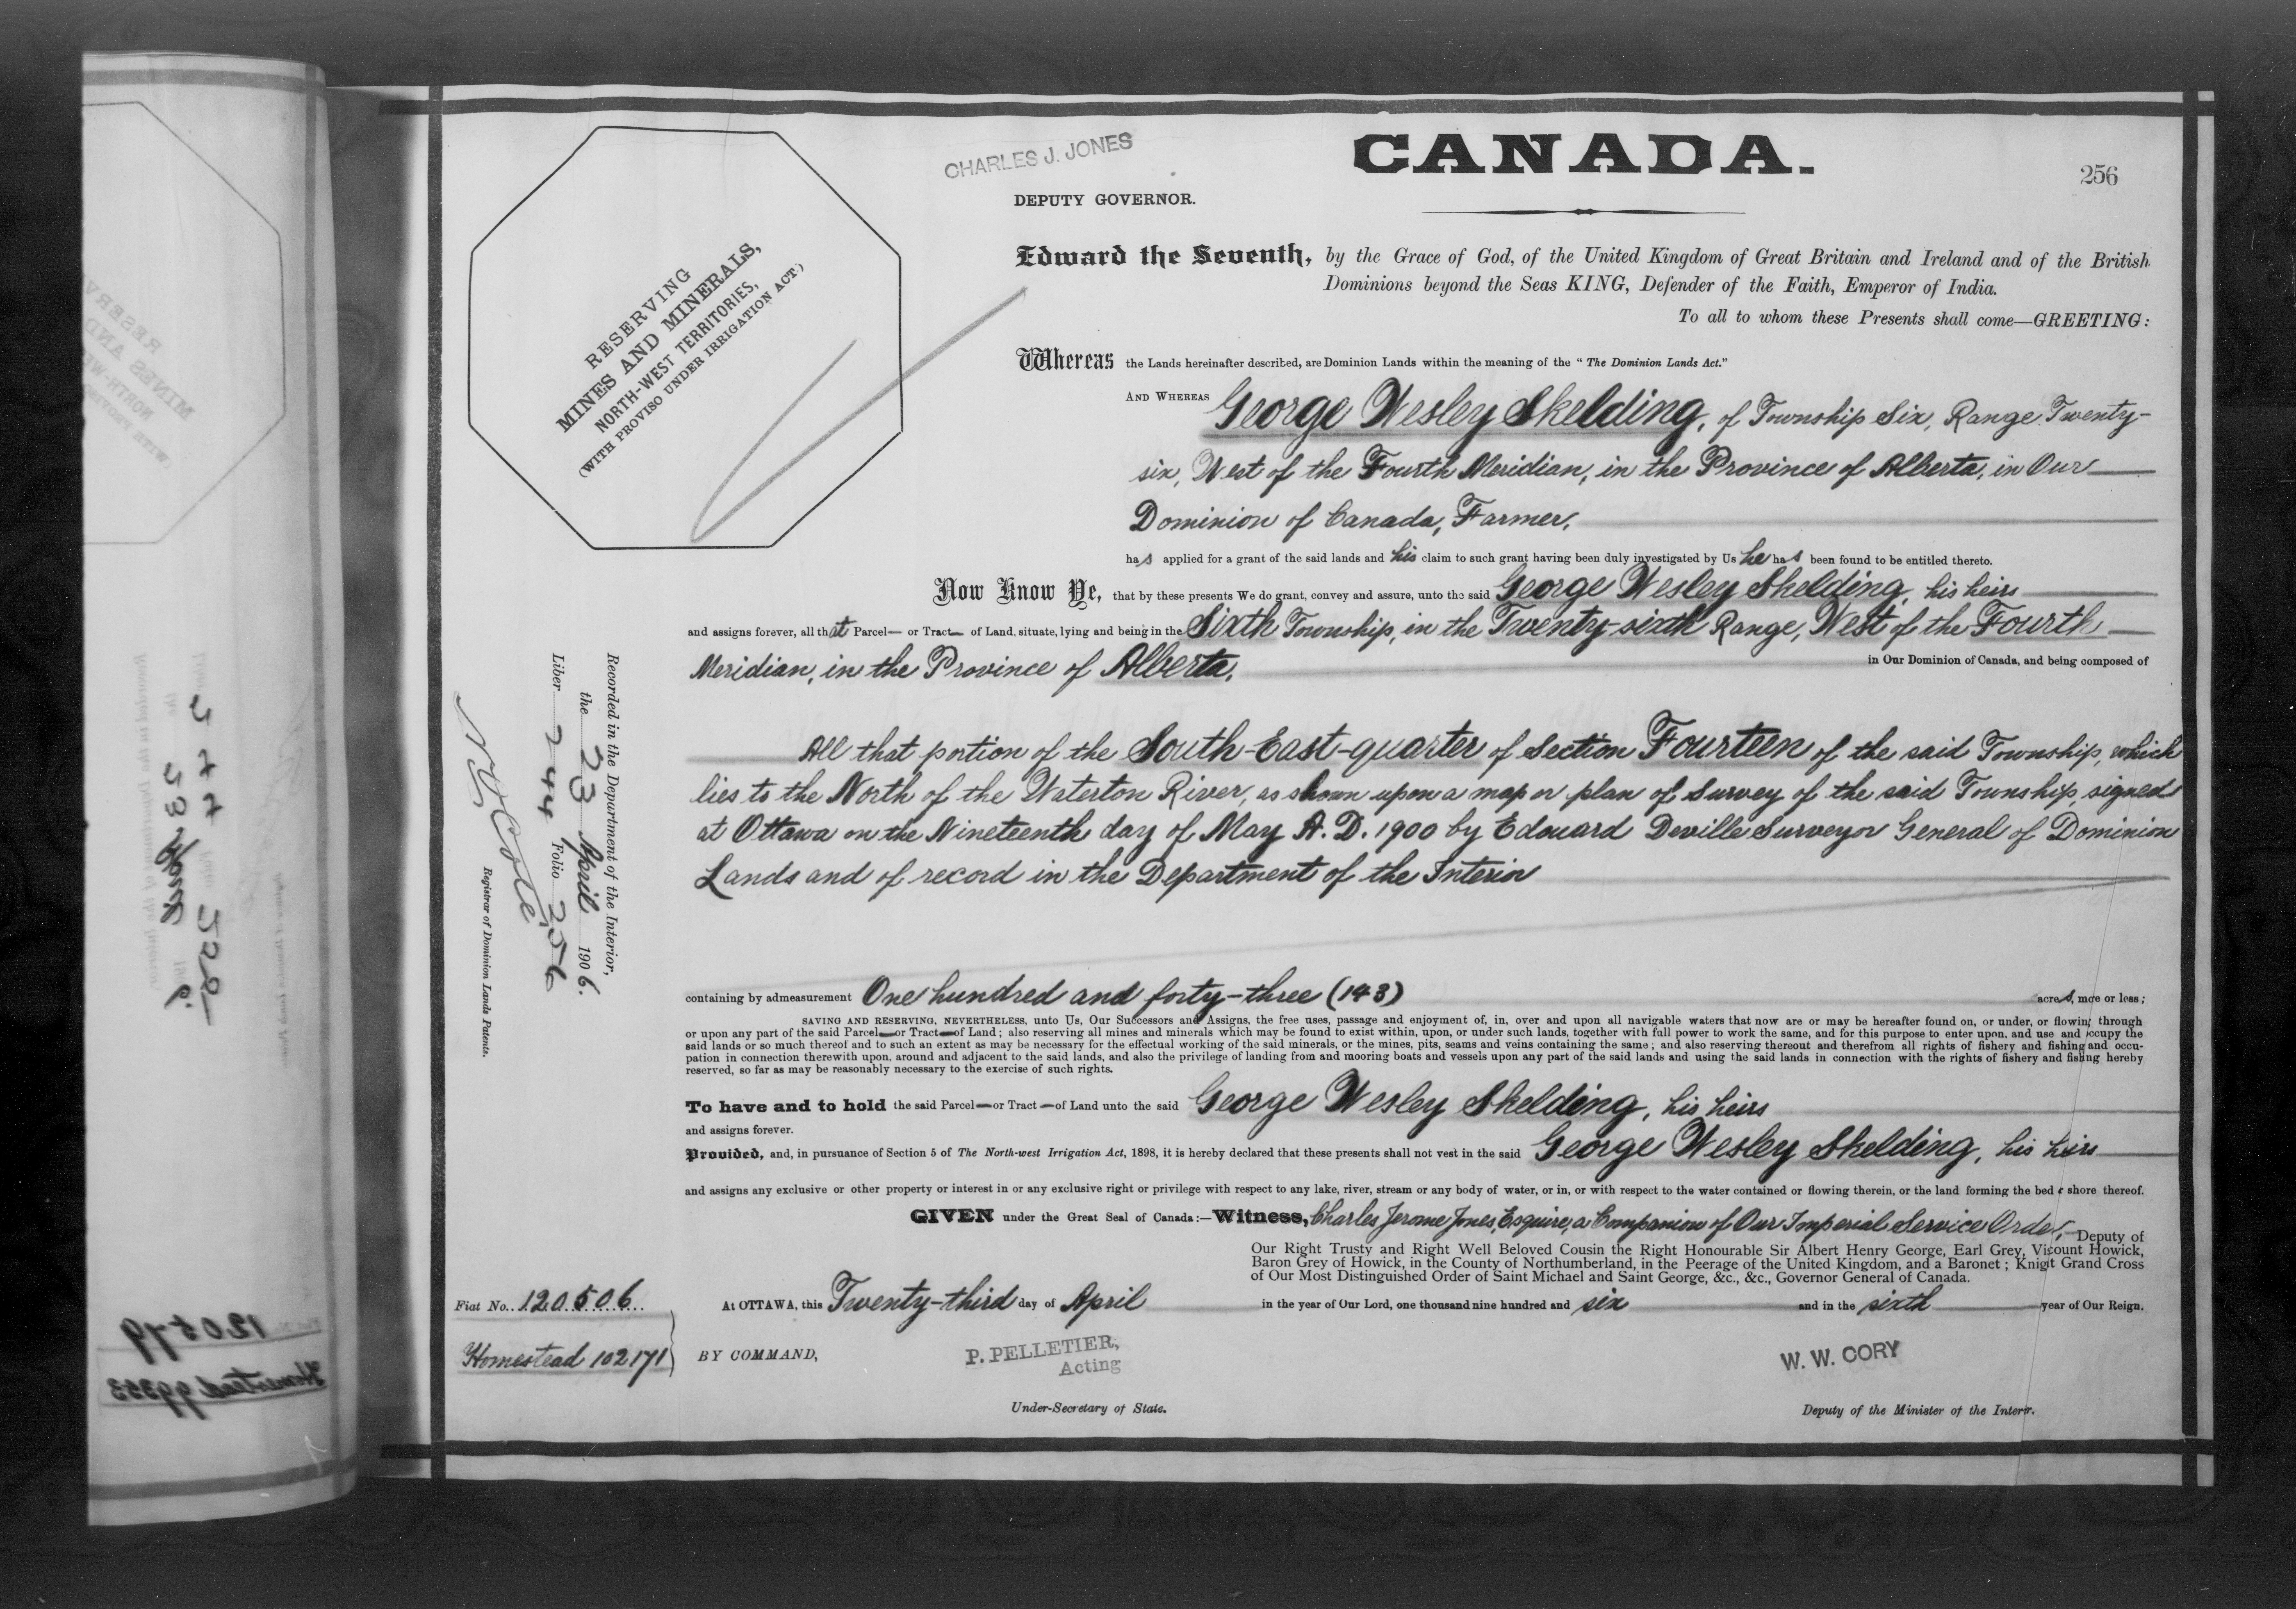 CHARLES J. JONES
DEPUTY GOVERNOR.
CANADA.
256
RESERVING
MINES AND MINERALS,
NORTH-WEST TERRITORIES,
(WITH PROVISO UNDER IRRIGATION ACT.)
Edward the Seventh, by the Grace of God, of the United Kingdom of Great Britain and Ireland and of the British
Dominions beyond the Seas KING, Defender of the Faith, Emperor of India.
To all to whom these Presents shall come—GREETING:
Whereas the Lands hereinafter described, are Dominion Lands within the meaning of the "The Dominion Lands Act."
AND WHEREAS George Wesley Skelding, of Township Six, Range Twenty-
six, West of the Fourth Meridian, in the Province of Alberta, in Our
Dominion of Canada, Farmer,
has applied for a grant of the said lands and his claim to such grant having been duly investigated by Us he has been found to be entitled thereto.
Now Know Ye, that by these presents We do grant, convey and assure, unto the said George Wesley Skelding, his heirs
and assigns forever, all that Parcel— or Tract— of Land, situate, lying and being in the Sixth Township, in the Twenty-sixth Range, West of the Fourth
Meridian, in the Province of Alberta,
in Our Dominion of Canada, and being composed of
All that portion of the South-East-quarter of Section Fourteen of the said Township, which
lies to the North of the Waterton River, as shown upon a map or plan of Survey of the said Township, signed
at Ottawa on the Nineteenth day of May A. D. 1900 by Edouard Deville Surveyor General of Dominion
Lands and of record in the Department of the Interior
containing by admeasurement One hundred and forty-three (143) acres, more or less;
SAVING AND RESERVING, NEVERTHELESS, unto Us, Our Successors and Assigns, the free uses, passage and enjoyment of, in, over and upon all navigable waters that now are or may be hereafter found on, or under, or flowing through
or upon any part of the said Parcel—or Tract—of Land; also reserving all mines and minerals which may be found to exist within, upon, or under such lands, together with full power to work the same, and for this purpose to enter upon, and use and occupy the
said lands or so much thereof and to such an extent as may be necessary for the effectual working of the said minerals, or the mines, pits, seams and veins containing the same; and also reserving thereout and therefrom all rights of fishery and fishing and occu-
pation in connection therewith upon, around and adjacent to the said lands, and also the privilege of landing from and mooring boats and vessels upon any part of the said lands and using the said lands in connection with the rights of fishery and fishing hereby
reserved, so far as may be reasonably necessary to the exercise of such rights.
To have and to hold the said Parcel—or Tract—of Land unto the said George Wesley Skelding, his heirs
and assigns forever.
Provided, and, in pursuance of Section 5 of The North-west Irrigation Act, 1898, it is hereby declared that these presents shall not vest in the said George Wesley Skelding, his heirs
and assigns any exclusive or other property or interest in or any exclusive right or privilege with respect to any lake, river, stream or any body of water, or in, or with respect to the water contained or flowing therein, or the land forming the bed or shore thereof.
GIVEN under the Great Seal of Canada:—Witness, Charles Jerome Jones, Esquire, a Companion of Our Imperial Service Order, Deputy of
Our Right Trusty and Right Well Beloved Cousin the Right Honourable Sir Albert Henry George, Earl Grey, Viscount Howick,
Baron Grey of Howick, in the County of Northumberland, in the Peerage of the United Kingdom, and a Baronet; Knight Grand Cross
of Our Most Distinguished Order of Saint Michael and Saint George, &c., &c., Governor General of Canada.
At OTTAWA, this Twenty-third day of April in the year of Our Lord, one thousand nine hundred and six and in the sixth year of Our Reign.
Fiat No. 120506
Homestead 102171
BY COMMAND,
P. PELLETIER,
Acting
Under-Secretary of State.
W. W. CORY
Deputy of the Minister of the Interior.
Recorded in the Department of the Interior,
the 23 April 1906.
Liber 244 Folio 256
Registrar of Dominion Lands Patents.
120579
Homestead 99353